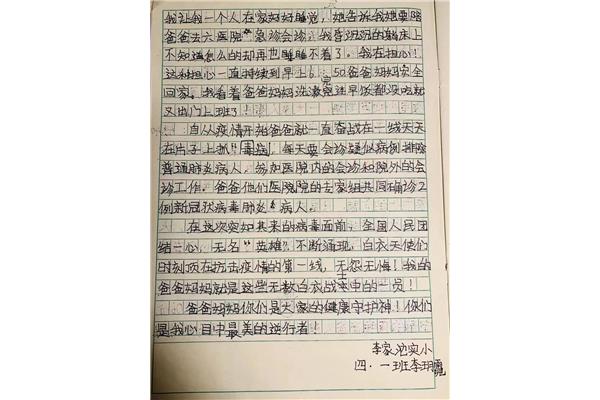 我让我一个人在家好好睡觉，她告诉我她要陪
爸爸去六医院"急诊会诊"。我昏沉沉的躺床上
不知道怎么的却再也睡睡不着了。我在担心！
这种担心一直持续到早上6:50爸爸妈妈安全
回家。我看着爸爸妈妈洗漱完连早饭都没吃就
又出门上班了！
自从疫情开始爸爸就一直奋战在一线天天
在片子上抓"毒病"，每天要会诊疑似病例排除
普通肺炎病人。参加医院内的会诊和院外的会
诊工作。爸爸他们医院院的专家组共同确诊2
例新冠状病毒肺炎"病人。
在这次突如其来的病毒面前，全国人民团
结一心，无名"英雄"不断涌现，白衣天使们
时刻顶在抗击疫情的第一线，无怨无悔！我的
爸爸妈妈就是这些无数白衣战士中的一员！
爸爸妈妈你们是大家的健康守护神！你们
是我心目中最美的逆行者！
李家沱实小
四·一班李玥